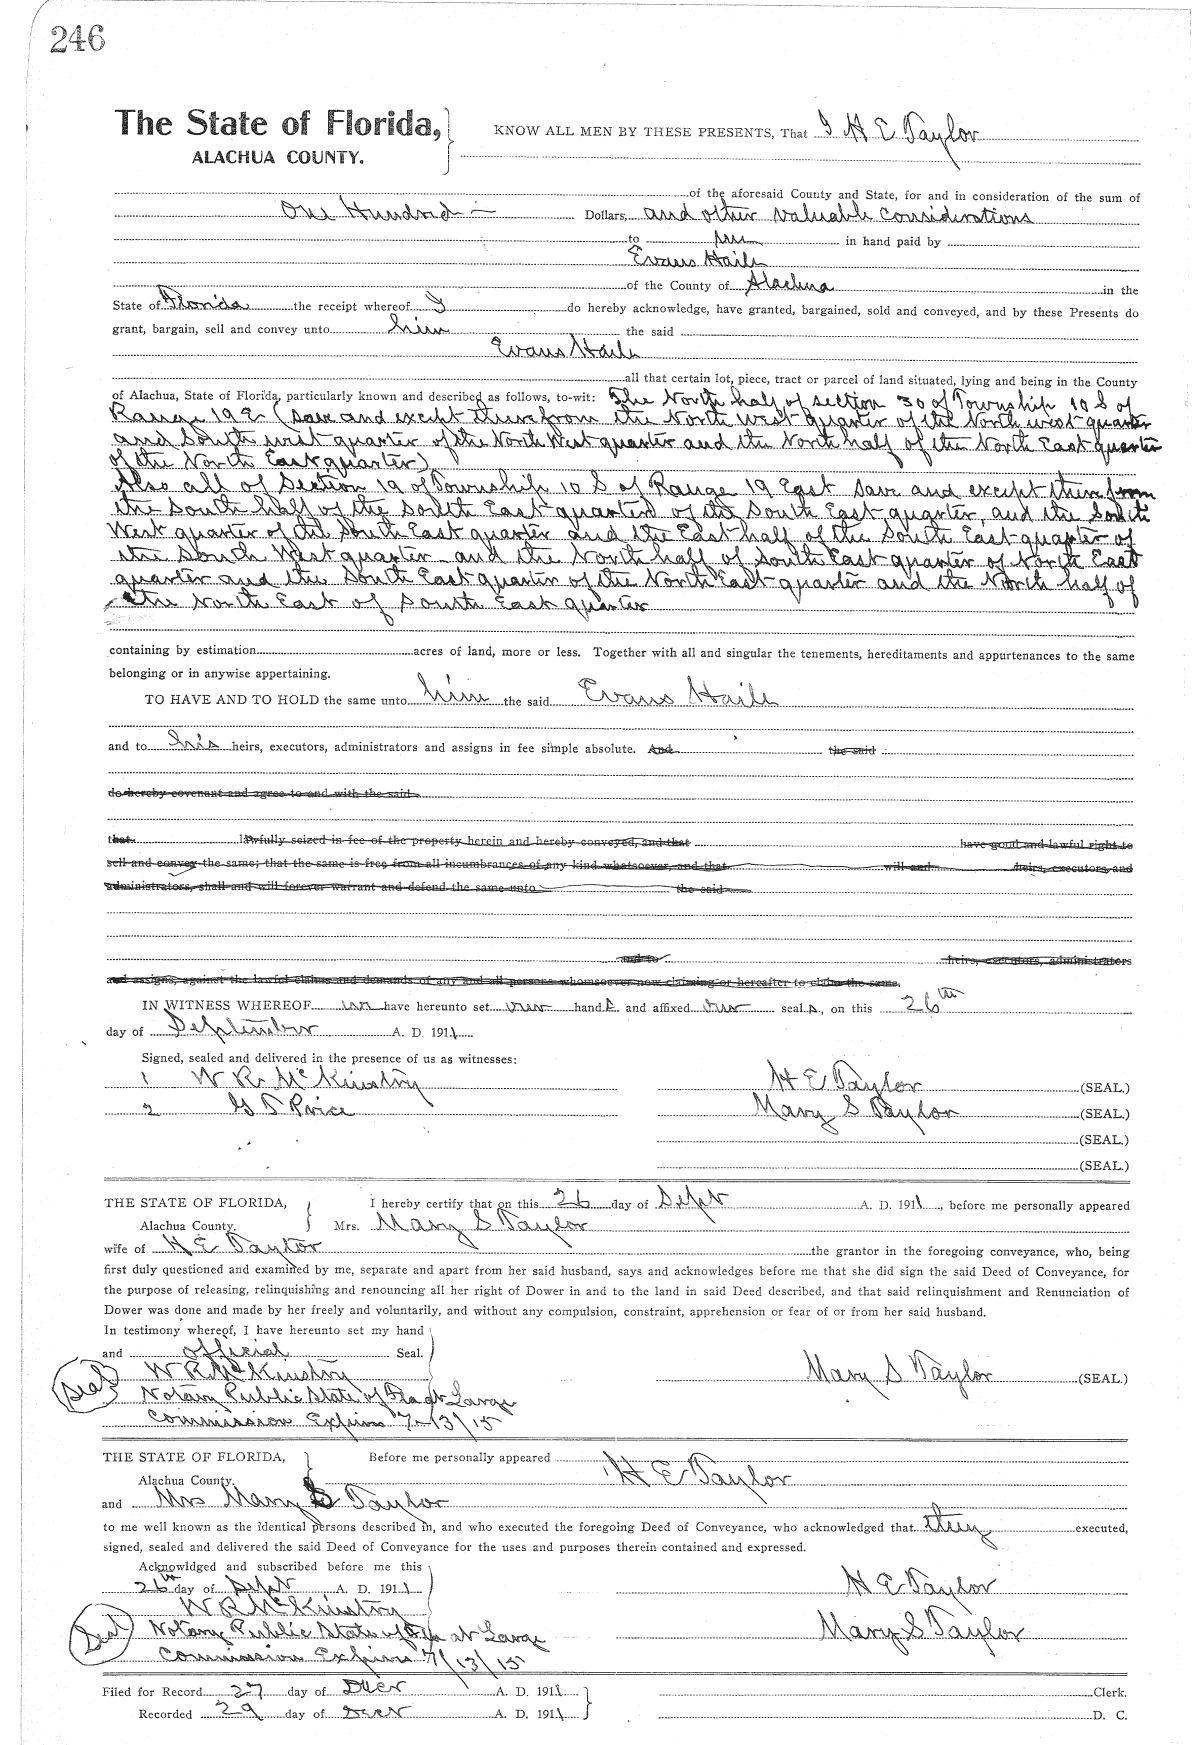 246
The State of Florida, KNOW ALL MEN BY THESE PRESENTS, That I H E Taylor
ALACHUA COUNTY.
of the aforesaid County and State, for and in consideration of the sum of
One Hundred — Dollars, and other valuable considerations
to me in hand paid by
Evans Haile
of the County of Alachua in the
State of Florida the receipt whereof I do hereby acknowledge, have granted, bargained, sold and conveyed, and by these Presents do
grant, bargain, sell and convey unto him the said
Evans Haile
all that certain lot, piece, tract or parcel of land situated, lying and being in the County
of Alachua, State of Florida, particularly known and described as follows, to-wit: The North half of section 30 of Township 10 S of
Range 19 E (save and except therefrom the North west quarter of the North west quarter
and South west quarter of the North West quarter and the North half of the North East quarter
of the North East quarter)
Also all of Section 19 of Township 10 S of Range 19 East save and except therefrom
the South half of the South East quarter of the South East quarter, and the South
West quarter of the South East quarter and the East half of the South East quarter of
the South West quarter and the North half of South East quarter of North East
quarter and the South East quarter of the North East quarter and the North half of
the North East of South East quarter
containing by estimation acres of land, more or less. Together with all and singular the tenements, hereditaments and appurtenances to the same
belonging or in anywise appertaining.
TO HAVE AND TO HOLD the same unto him the said Evans Haile
and to his heirs, executors, administrators and assigns in fee simple absolute. And the said
do hereby covenant and agree to and with the said
that lawfully seized in fee of the property herein and hereby conveyed, and that have good and lawful right to
sell and convey the same; that the same is free from all incumbrances of any kind whatsoever, and that will and heirs, executors, and
administrators, shall and will forever warrant and defend the same unto the said
and to heirs, executors, administrators
and assigns, against the lawful claims and demands of any and all persons whomsoever now claiming or hereafter to claim the same.
IN WITNESS WHEREOF we have hereunto set our hands and affixed our seals, on this 26th
day of September A. D. 1911
Signed, sealed and delivered in the presence of us as witnesses:
1 W R McKinstry H E Taylor (SEAL.)
2 G S Price Mary S Taylor (SEAL.)
(SEAL.)
(SEAL.)
THE STATE OF FLORIDA, I hereby certify that on this 26 day of Sept A. D. 1911, before me personally appeared
Alachua County. Mrs. Mary S Taylor
wife of H E Taylor the grantor in the foregoing conveyance, who, being
first duly questioned and examined by me, separate and apart from her said husband, says and acknowledges before me that she did sign the said Deed of Conveyance, for
the purpose of releasing, relinquishing and renouncing all her right of Dower in and to the land in said Deed described, and that said relinquishment and Renunciation of
Dower was done and made by her freely and voluntarily, and without any compulsion, constraint, apprehension or fear of or from her said husband.
In testimony whereof, I have hereunto set my hand
and official Seal.
Seal W R McKinstry Mary S Taylor (SEAL)
Notary Public State of Fla at Large
Commission Expires 7/13/15
THE STATE OF FLORIDA, Before me personally appeared H E Taylor
Alachua County.
and Mrs Mary S Taylor
to me well known as the identical persons described in, and who executed the foregoing Deed of Conveyance, who acknowledged that they executed,
signed, sealed and delivered the said Deed of Conveyance for the uses and purposes therein contained and expressed.
Acknowldged and subscribed before me this
26th day of Sept A. D. 1911 H E Taylor
W R McKinstry
Seal Notary Public State of Fla at Large Mary S Taylor
Commission Expires 7/13/15
Filed for Record 27 day of A. D. 1911 Clerk.
Recorded 29 day of A. D. 1911 D. C.